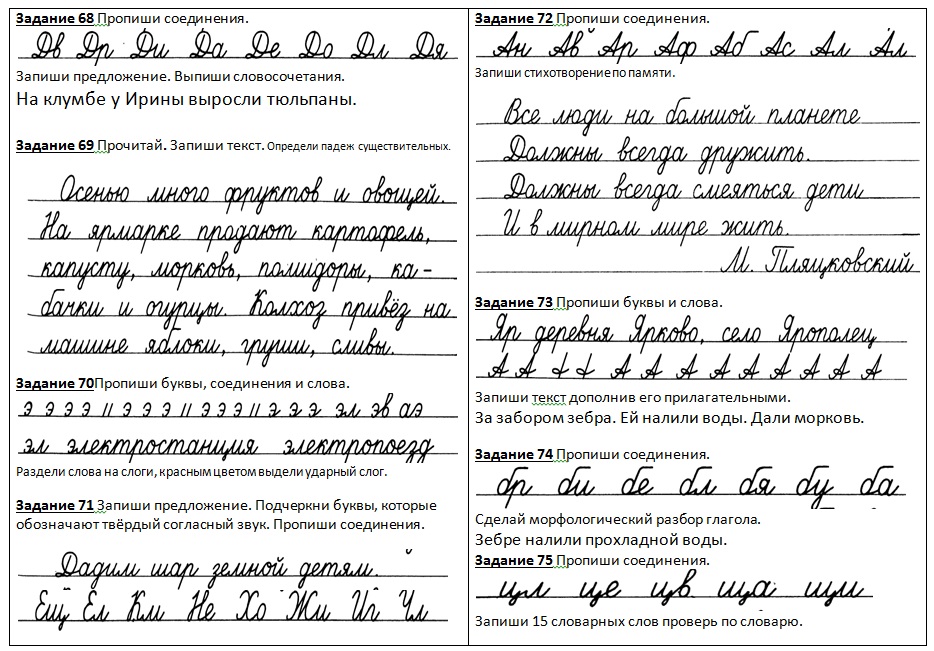 Задание 68 Пропиши соединения.
Дв Др Ди Да Де До Дл Дя
Запиши предложение. Выпиши словосочетания.
На клумбе у Ирины выросли тюльпаны.
Задание 69 Прочитай. Запиши текст. Определи падеж существительных.
Осенью много фруктов и овощей.
На ярмарке продают картофель,
капусту, морковь, помидоры, ка-
бачки и огурцы. Колхоз привёз на
машине яблоки, груши, сливы.
Задание 70Пропиши буквы, соединения и слова.
э э э э // э э э // э э э // э э э эл эв аэ
эл электростанция электропоезд
Раздели слова на слоги, красным цветом выдели ударный слог.
Задание 71 Запиши предложение. Подчеркни буквы, которые
обозначают твёрдый согласный звук. Пропиши соединения.
Дадим шар земной детям.
Ещ Ел Км Не Хо Жи Ил Чл
Задание 72 Пропиши соединения.
Ан Ав Ар Аф Аб Ас Ал Ал
Запиши стихотворение по памяти.
Все люди на большой планете
Должны всегда дружить.
Должны всегда смеяться дети
И в мирном мире жить.
М. Пляцковский
Задание 73 Пропиши буквы и слова.
Яр деревня Ярково, село Ярополец
А А А А А А А А А А А А А
Запиши текст дополнив его прилагательными.
За забором зебра. Ей налили воды. Дали морковь.
Задание 74 Пропиши соединения.
бр би бе бл бя бу ба
Сделай морфологический разбор глагола.
Зебре налили прохладной воды.
Задание 75 Пропиши соединения.
цл це цв ща щи
Запиши 15 словарных слов проверь по словарю.